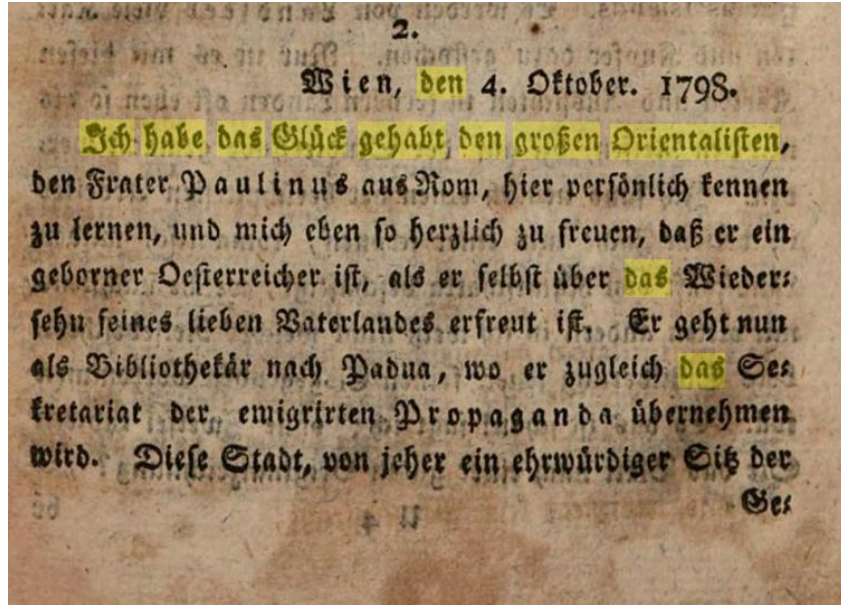 2.
Wien, den 4. Oktober. 1798.
Ich habe das Glück gehabt den großen Orientalisten,
den Frater Paulinus aus Rom, hier persönlich kennen
zu lernen, und mich eben so herzlich zu freuen, daß er ein
geborner Oesterreicher ist, als er selbst über das Wieder-
sehn seines lieben Vaterlandes erfreut ist. Er geht nun
als Bibliothekär nach Padua, wo er zugleich das Se-
kretariat der emigrirten Propaganda übernehmen
wird. Diese Stadt, von jeher ein ehrwürdiger Sitz der
Ge-